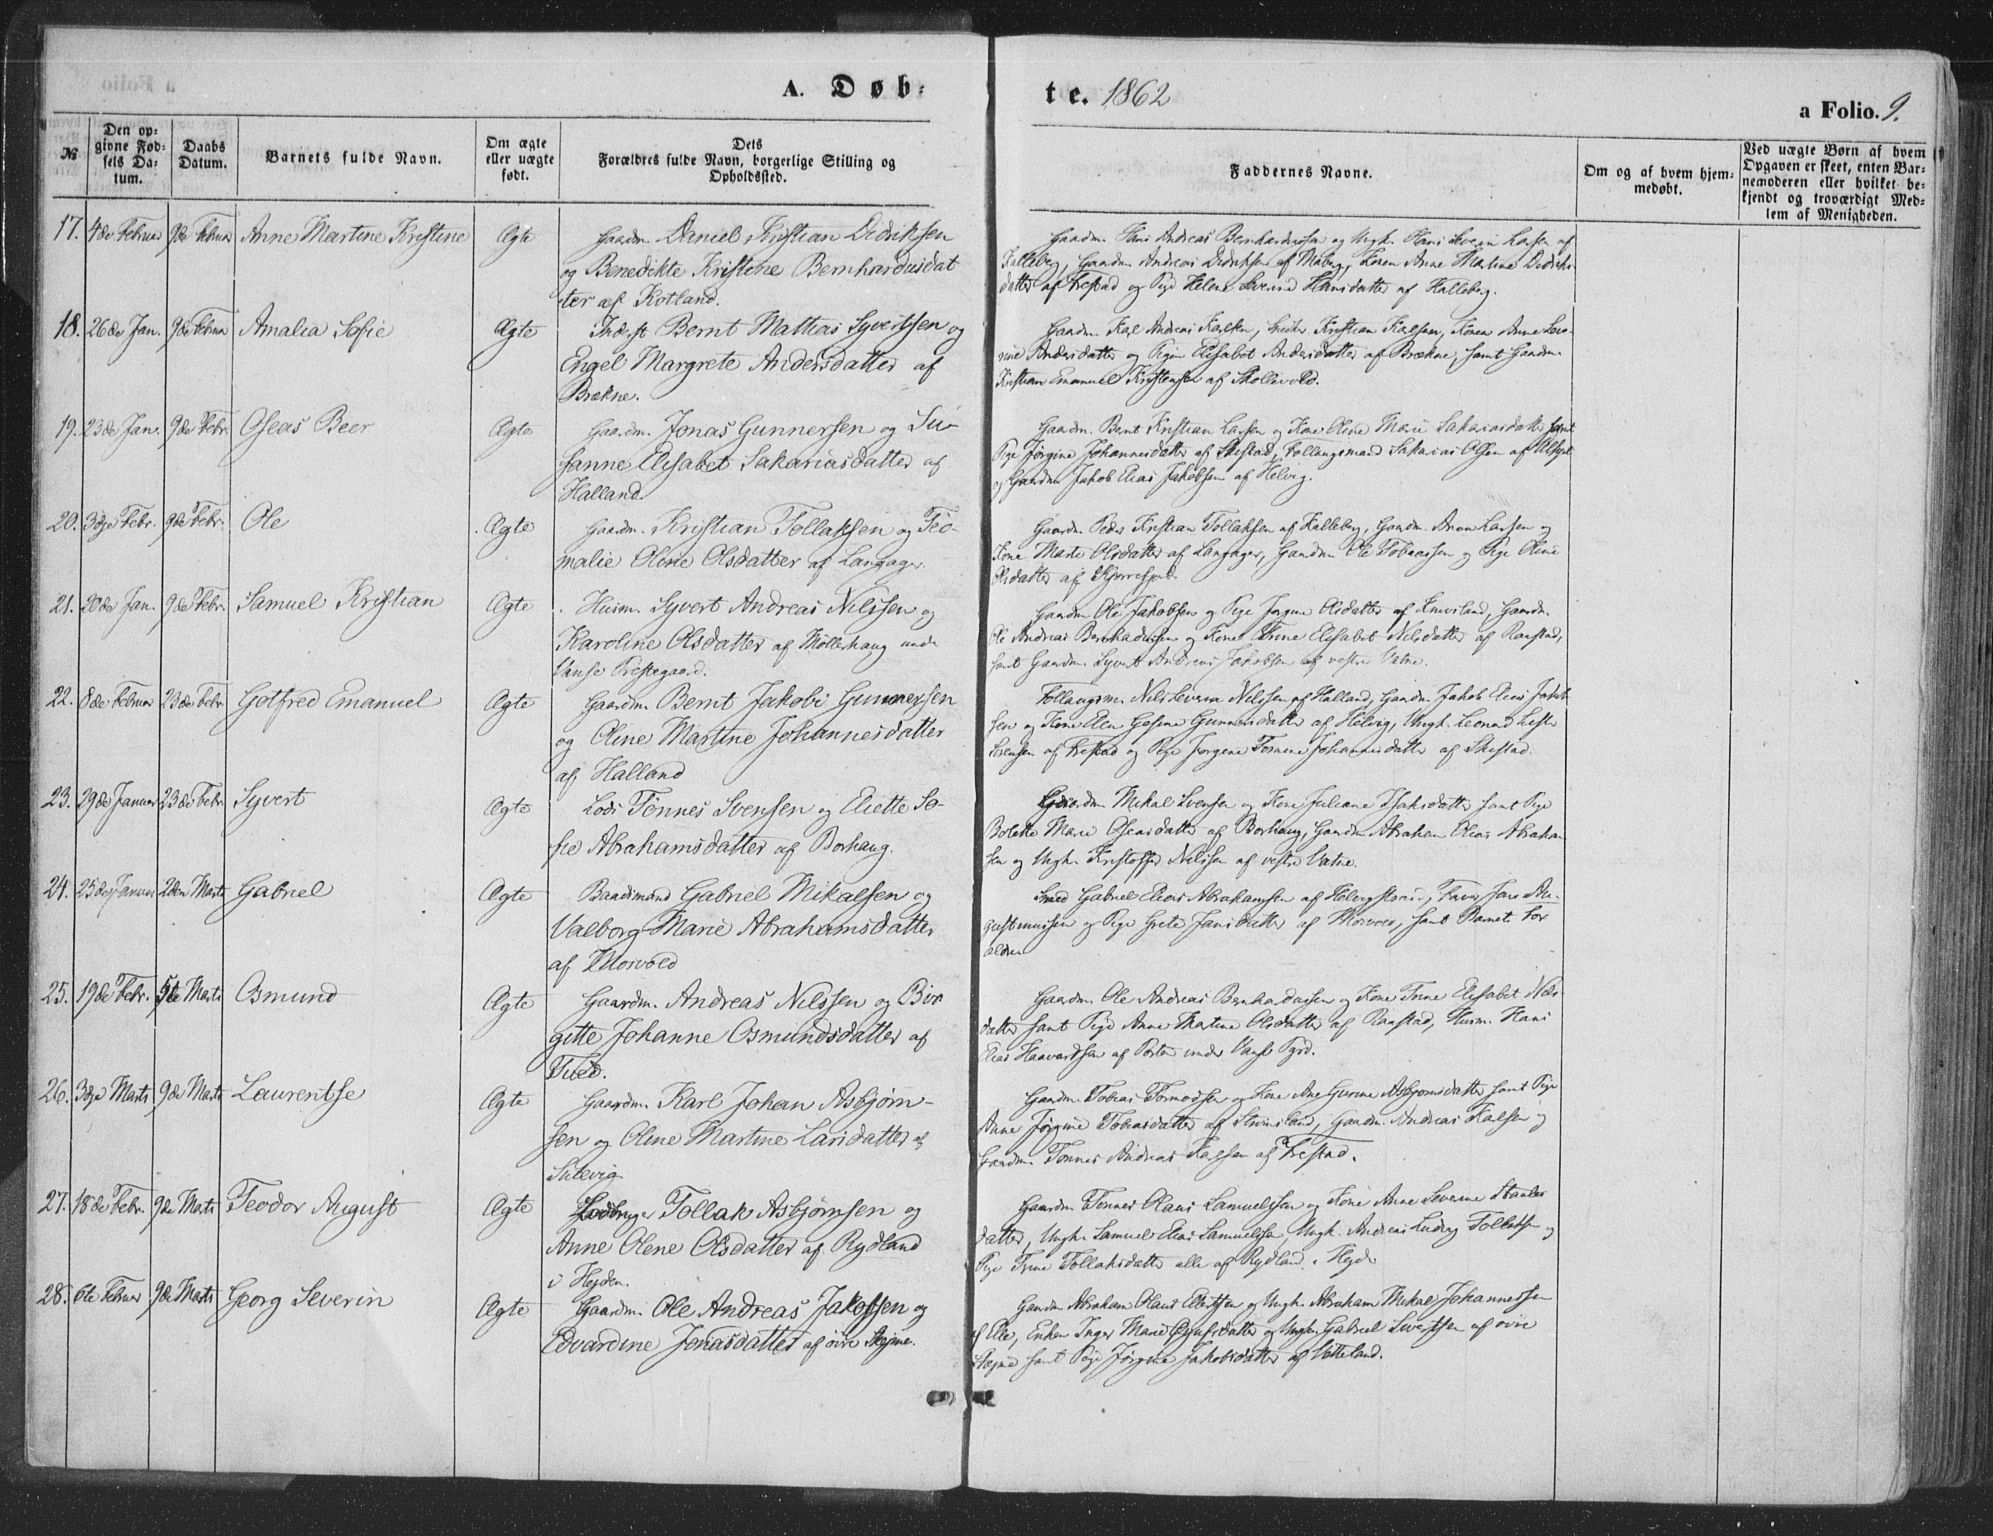 A. Døb:
te. 1862
a Folio. 9.
№
Den op-
givne Fød-
sels Da-
tum.
Daabs
Datum.
Barnets fulde Navn.
Om ægte
eller uægte
født.
Dets
Forældres fulde Navn, borgerlige Stilling og
Opholdssted.
Faddernes Navne.
Om og af hvem hjem-
medøbt.
Ved uægte Børn af hvem
Opgaven er skeet, enten Bar-
nemoderen eller hvilket be-
kjendt og troværdigt Med-
lem af Menigheden.
17. 4de Februar 9de Februar Anne Martine Kristine Ægte Gaardm. Daniel Kristian Didriksen
og Benedikte Kristine Bernhardusdat
ter af Kotland.
Gaardm. Hans Andreas Bernhardussen og Ungk. Hans Severin Larsen af
Kalleberg, Gaardm Andreas Didriksen af Maberg, Konen Anne Martine Didriks
datter af Frestad og Pige Helene Severine Hansdatter af Kalleberg.
18. 26de Jan. 9de Februar Amalia Sofie Ægte Inderst Bernt Mattias Syvertsen og
Engel Margrete Andersdatter af
Brækne.
Gaardm. Karl Andreas Karlsen, Kristian Karlsen, Konen Anne
Andersdatter og Pigen Elisabet Andersdatter af Brækne, samt Gaardm.
Kristian Emanuel Kristensen af Skollevold.
19. 23de Jan. 9de Febr. Oseas Beer Ægte Gaardm. Jonas Gunnersen og Su-
sanne Elisabet Sakariasdatter af
Halland.
Gaardm. Bernt Kristian Larsen og Kone Oline Marie Sakariasdatter samt
Pige Jørgine Johannesdatter af Skeistad, Follaugsmand Sakarias Olsen af
og Gaardm Jakob Elias Jakobsen af Helvig.
20. 3die Febr. 9de Febr. Ole Ægte Gaardm. Kristian Tollaksen og Teo-
malie Oline Olsdatter af Langager.
Gaardm Peder Kristian Tollaksen af Kalleberg, Gaardm Aron Larsen og
Kone Marte Olsdatter af Langager, Gaardm Ole Tobiassen og Pige Oline
Olsdatter af
21. 30de Jan. 9de Febr. Samuel Kristian Ægte Husm. Syvert Andreas Nilssen og
Karoline Olsdatter af Møllerhaug under
Vanse Prestegaard.
Gaardm Ole Jakobsen og Pige Jørgine Olsdatter af Gaardm.
Ole Andreas Bernhardussen og Kone Trine Elisabet Nilsdatter af Raastad,
samt Gaardm Syvert Andreas Jakobsen af vestre Vatne.
22. 8de Februar 23de Febr. Gotfred Emanuel Ægte Gaardm Bernt Jakobi Gunnersen
og Oline Martine Johannesdatter
af Halland
Follaugsm. Nils Severin Nilssen af Halland, Gaardm Jakob Elias Jakob
sen og Kone Elen Gesine Gunnersdatter af Helvig, Ungk. Leonard
Sørensen af Frestad og Pige Jørgene Tomine Johannesdatter af Skeistad.
23. 29de Januar 23de Febr. Syvert Ægte Lods Tønnes Svensen og Eliette So-
fie Abrahamsdatter af Borhaug.
Gaardm Mikal Svensen og Kone Juliane Isaksdatter samt Pige
Bolette Marie Oseasdatter af Borhaug, Gaardm Abraham Elias Abraham
sen og Ungk. Kristoffer Nilssen af vestre Vatne.
24. 25de Januar 2den Marts Gabriel Ægte Baadsmand Gabriel Mikalsen og
Valborg Marie Abrahamsdatter
af Morvold
Smed Gabriel Elias Abrahamsen af Jans Au-
gustinussen og Pige Grete Jansdatter af samt Barnet for
ældre
25. 19de Febr. 5te Marts Osmund Ægte Gaardm. Andreas Nilssen og Bir
gitte Johanne Osmundsdatter af
Tued.
Gaardm. Ole Andreas Bernhardussen og Kone Trine Elisabet Nils-
datter samt Pige Anne Martine Olsdatter af Raastad, Husm. Hans
Elias Haavardsen af Porten under Vanse Pgrd.
26. 3die Marts 9de Marts Laurentse Ægte Gaardm. Karl Johan Asbjørn-
sen og Oline Martine Larsdatter af
Sulevig
Gaardm Tobias Tormodsen og Kone Ane Gurine Asbjørnsdatter samt Pige
Anne Jørgine Tobiasdatter af Gaardm. Andreas Kalsen og
Gaardm. Tønnes Andreas Kalsen af Frestad.
27. 18de Febr. 9de Marts Teodor August Ægte Jordbruger Tollak Asbjørnsen og
Anne Olene Olsdatter af Rydland
i Hejden.
Gaardm Tønnes Olaus Samuelssen og Kone Anne Severine
datter, Ungk. Samuel Elias Samuelssen, Ungk. Andreas Ludvig Tollaksen og
Pige Trine Tollaksdatter alle af Rydland i Hejde
28. 6te Februar 9de Marts Georg Severin Ægte Gaardm. Ole Andreas Jakobsen og
Edvardine Jonasdatter af øvre Skejme.
Gaardm Abraham Olaus Ellertsen og Ungk. Abraham Mikal Johannessen
af Elle, Enken Inger Marie datter og Ungk. Gabriel Sivertsen af øvre
Skejme samt Pige Jørgine Jakobsdatter af Vatteland.